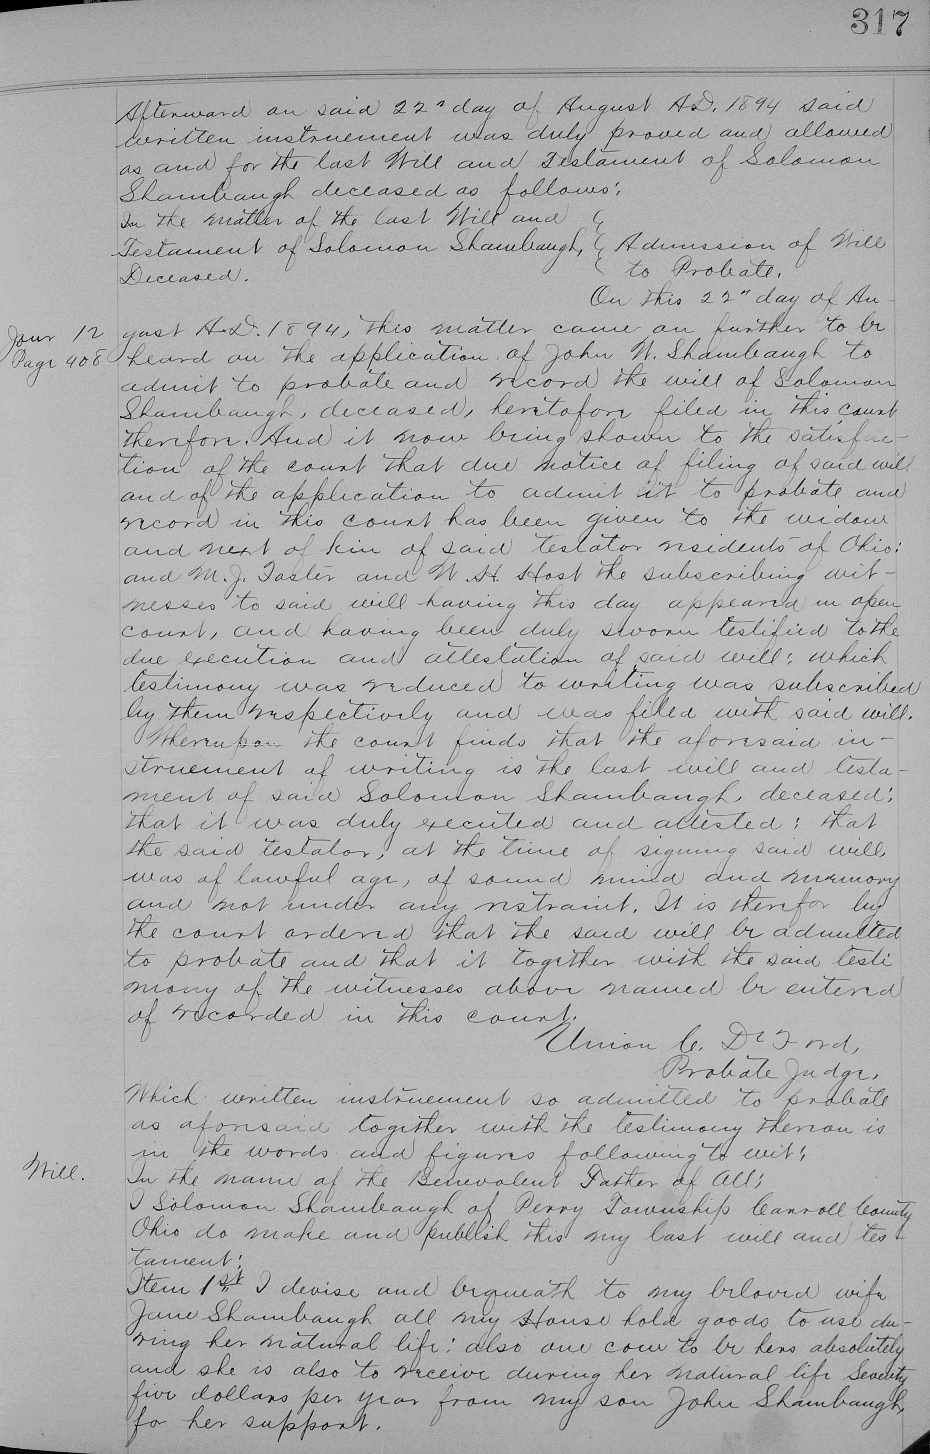 317
Afterward on said 22" day of August A.D. 1894 said
written instruement was duly proved and allowed
as and for the last Will and Testament of Solomon
Shambaugh deceased as follows:
In the matter of the last Will and
Testament of Solomon Shambaugh, Admission of Will
Deceased. to Probate.
On this 22" day of Au-
Jour 12 gust A.D. 1894, this matter came on further to be
Page 408 heard on the application of John W. Shambaugh to
admit to probate and record the will of Solomon
Shambaugh, deceased, heretofore filed in this court
therefore. And it now being shown to the satisfac-
tion of the court that due notice of filing of said will
and of the application to admit it to probate and
record in this court has been given to the widow
and next of kin of said testator residents of Ohio:
and M. J. Taster and W. H. Host the subscribing wit-
nesses to said will having this day appeared in open
court, and having been duly sworn testified to the
due execution and attestation of said will; which
testimony was reduced to writing was subscribed
by them respectively and was filed with said will.
Whereupon the court finds that the aforesaid in-
struement of writing is the last will and testa-
ment of said Solomon Shambaugh, deceased;
that it was duly executed and attested; that
the said testator, at the time of signing said will,
was of lawful age, of sound mind and memory
and not under any restraint. It is therefor by
the court ordered that the said will be admitted
to probate and that it together with the said testi
mony of the witnesses above named be entered
of recorded in this court.
Union C. DeFord,
Probate Judge.
Which written instruement so admitted to probate
as aforesaid together with the testimony thereon is
in the words and figures following to wit;
Will. In the name of the Benevolent Father of All;
I Solomon Shambaugh of Perry Township Carroll County
Ohio do make and publish this my last will and tes
tament:
Item 1st I devise and bequeath to my beloved wife
Jane Shambaugh all my House hold goods to use du-
ring her natural life: also one cow to be hers absolutely
and she is also to receive during her natural life Seventy
five dollars per year from my son John Shambaugh,
for her support.